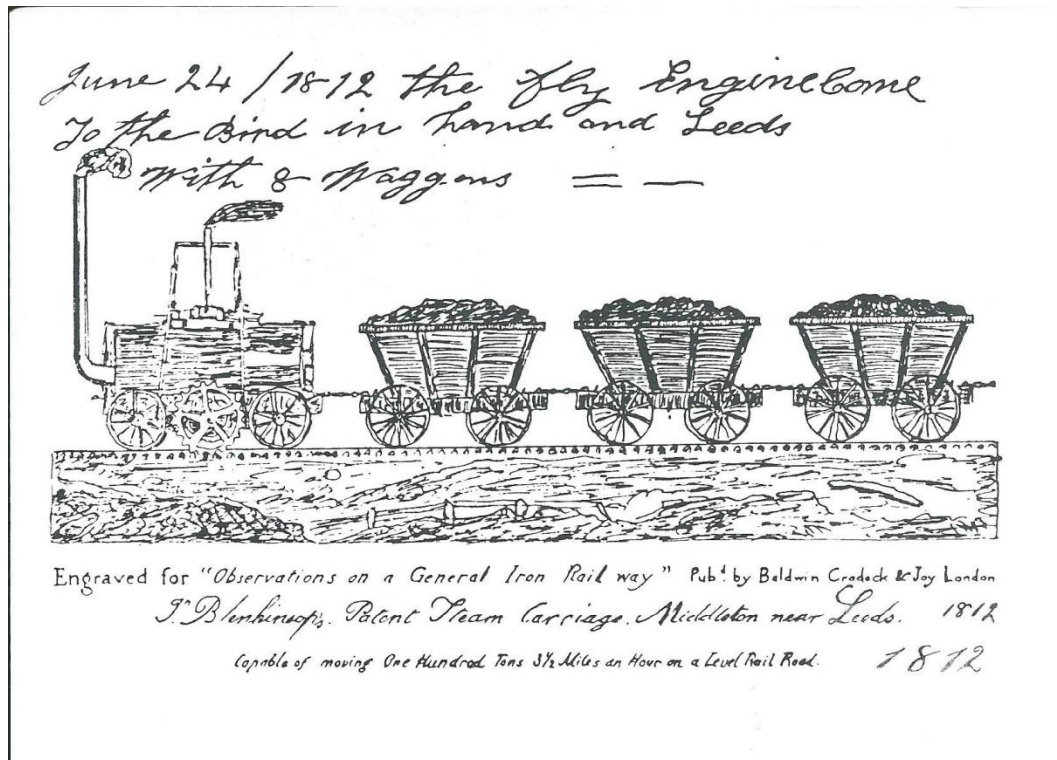 June 24 / 1812 the fly Engine Come
To the Bird in hand and Leeds
With 8 Waggons
Engraved for "Observations on a General Iron Rail way" Pubd. by Baldwin Cradock & Joy London
Jn. Blenkinsop's. Patent Steam Carriage. Middleton near Leeds. 1812
Capable of moving One Hundred Tons 3½ Miles an Hour on a Level Rail Road. 1812